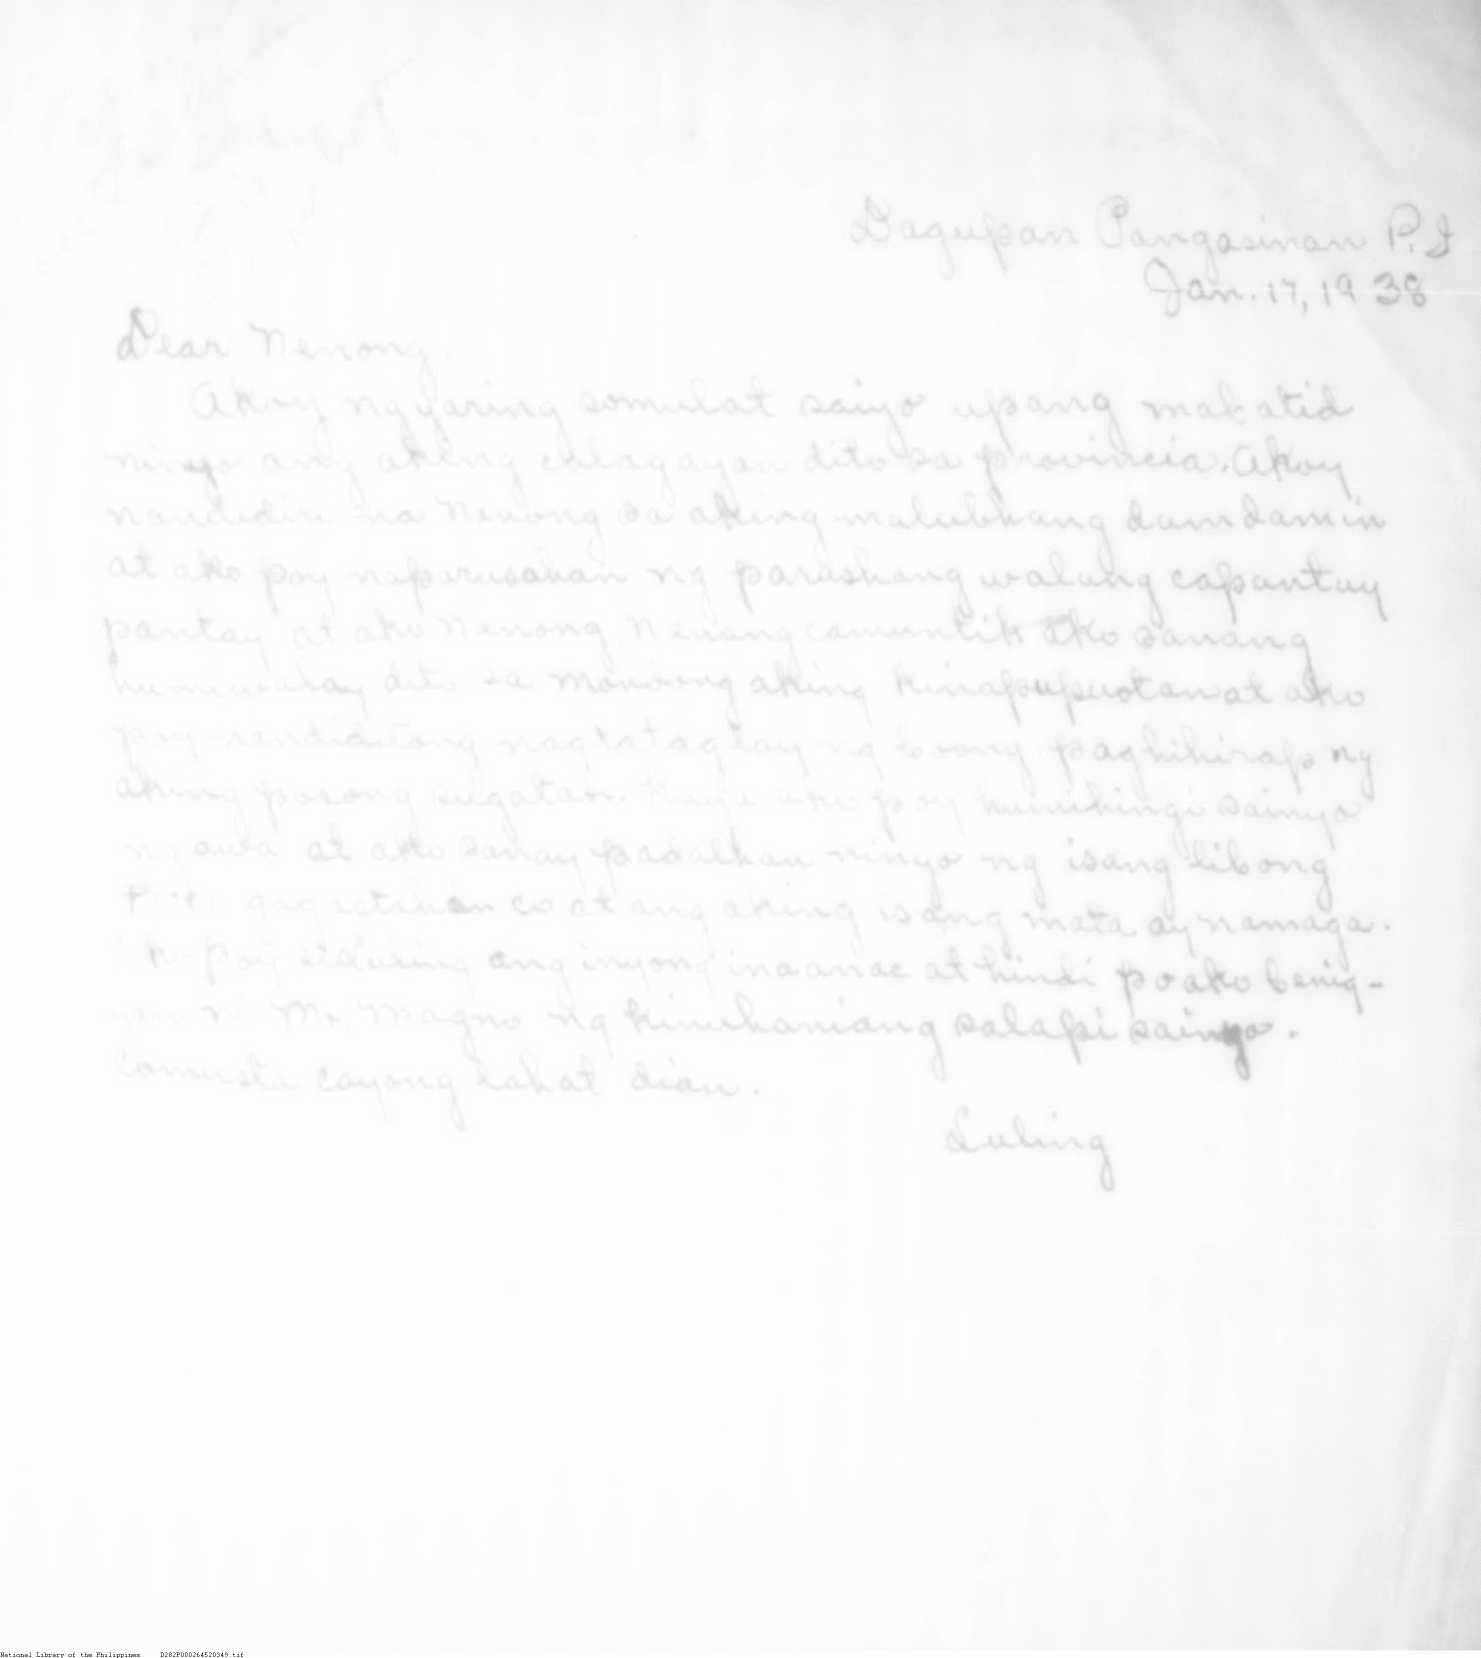 Dagupan Pangasinan P.I
Jan. 17, 1938
Dear Nenong.
Akoy ngyaring somulat saiyo upang makatid
ninyo ang aking calagayan dito sa provincia. Akoy
nandidin na Nenong sa aking malubhang damdamin
at ako poy naparusahan ng parushang walang capantay
pantay at ako Nenong, Nenong camuntik ako sanang
humiwalay dito sa mondong aking kinapupuotan at ako
poy nandiditong nagtataglay ng boong paghihirap ng
aking posong sugatan. Kaya ako poy humihingi sainyo
ng awa at ako sanay padalhan ninyo ng isang libong
gagastahin co at ang aking isang mata ay namaga.
poy ang inyong inaanac at hindi po ako benig-
yan ni Mr. Magno ng kinuhaniang salapi sainyo.
Comusta cayong lahat dian.
Luling
National Library of the Philippines D282P000264520349.tif